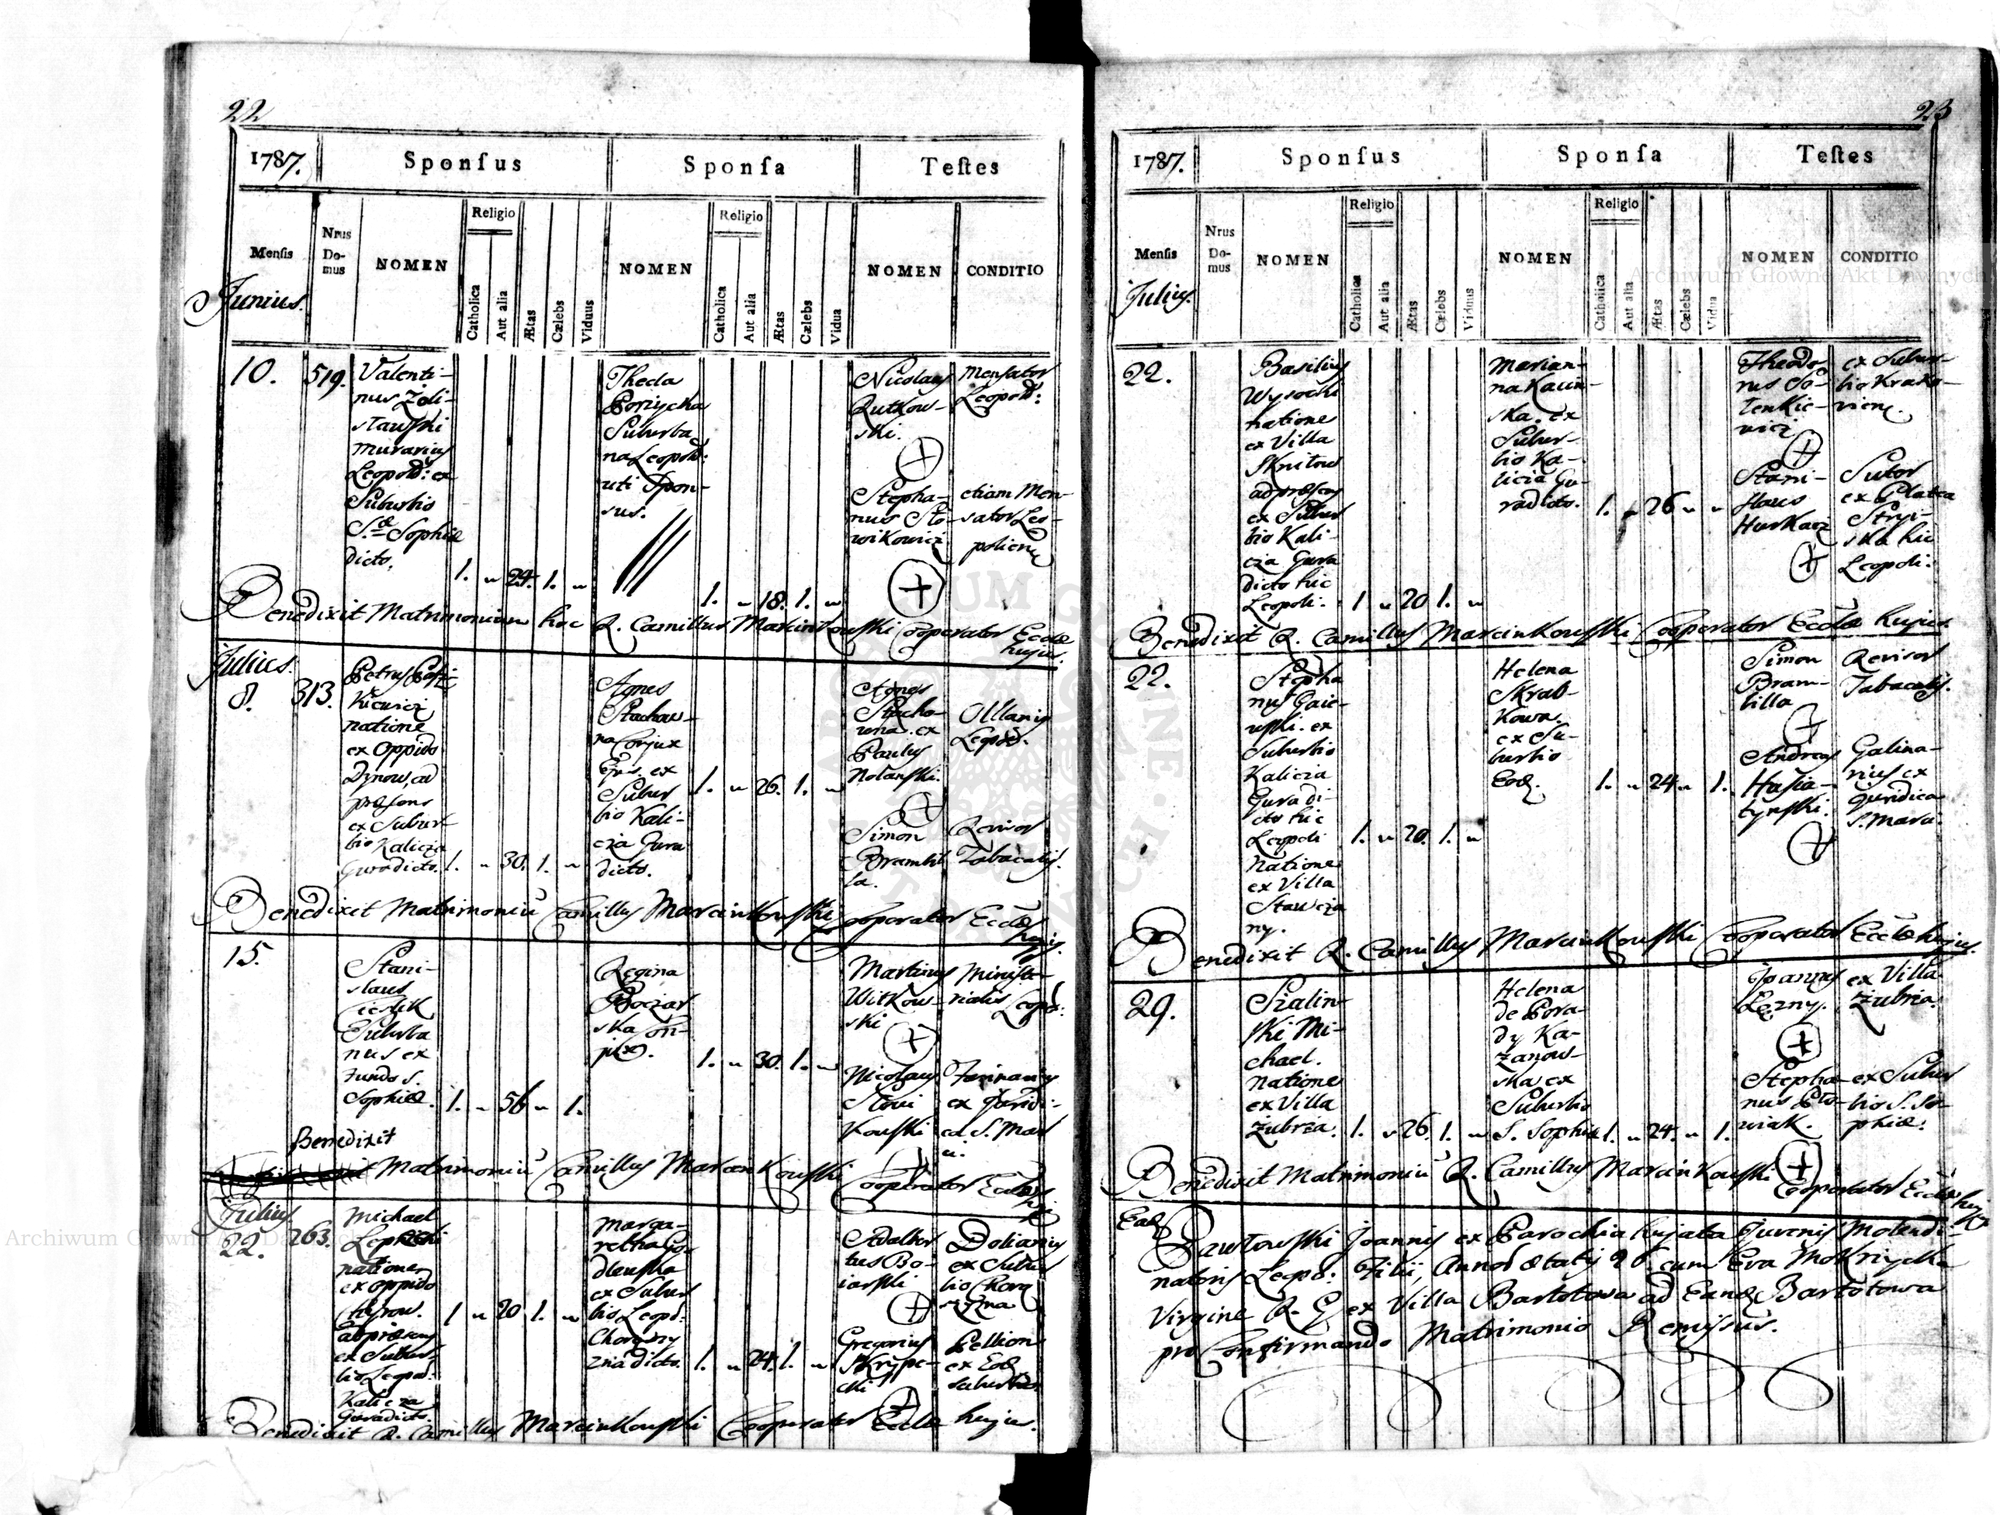 22
1787.
Sponſus
Sponſa
Teſtes
Menſis
Junius.
Nrus
Do-
mus
NOMEN
Religio
Catholica
Aut alia
Ætas
Cælebs
Viduus
NOMEN
Religio
Catholica
Aut alia
Ætas
Cælebs
Vidua
NOMEN
CONDITIO
10.
519.
Valenti-
nus Zoli-
stawski
murarius
Leopold: ex
Suburbio
S.tæ Sophiæ
dicto.
1. " 24. 1. "
Thecla
Suburba
na Leopold:
uti Spon-
sus.
1. " 18. 1. "
Nicolaus
Rutkow-
ski.
Mensator
Leopold:
Stepha-
nus Sto-
wikowicz
etiam Men-
sator Leo-
poliens
Benedixit Matrimonium hoc R. Camillus Marcinkowski Cooperator Ecclæ
hujus.
Julius.
8.
313.
Petrus
natione
ex Oppido
Dynow, ad
præsens
ex Subur-
bio Kalicza
Gura dicto.
1. " 30. 1. "
Agnes
Stachow-
na Conjux
Ejus. ex
Subur
bio Kali-
cza Gura
dicto.
1. " 26. 1. "
Agnes
Stacho-
wna. ex
Paulus
Nolanski.
Ollarius
Leopold.
Simon
Brambil
la.
Revisor
Tabacalis.
Benedixit Matrimoniū Camillus Marcinkowski Cooperator Ecclæ
hujus.
15.
Stani-
slaus
Cieslik
Suburba
nus ex
Fundo S.
Sophiæ.
1. " 56 " 1.
Regina
Boczar
ska Con-
jux.
1. " 30. 1. "
Martinus
Witkow-
ski
Ministe-
rialis Leopol:
Nicolaus
kowski
ex Juridi-
ca S. Mar
Benedixit
Matrimoniū Camillus Marcinkowski Cooperator Ecclæ
Julius
22.
263.
Michael
natione
ex oppido
ad præsens
ex Subur
bio Leopol:
Kalicza
Gura dicto.
1 " 20. 1. "
Marga-
retha
ex Subur
bio Leopol.
Chorąsz
zna dicto.
1. " 24. 1. "
Adalber
tus Bo-
iarski
Doliarius
ex Subur
bio Chorą
Gregorius
Skrzipe-
cki
Pellion
ex Eod
Suburbio
Benedixit R. Camillus Marcinkowski Cooperator Ecclæ hujus.
23
1787.
Sponſus
Sponſa
Teſtes
Menſis
Julius.
Nrus
Do-
mus
NOMEN
Religio
Catholica
Aut alia
Ætas
Cælebs
Viduus
NOMEN
Religio
Catholica
Aut alia
Ætas
Cælebs
Vidua
NOMEN
CONDITIO
22.
Basilius
Wysocki
natione
ex Villa
Sknilow
ad præsens
ex Subur
bio Kali-
cza Gura
dicto hic
Leopoli.
1 " 20 1. "
Marian-
na Kaczin-
ska. ex
Subur-
bio Ka-
licza Gu-
ra dicto.
1. " 26 " "
Theodo-
rus So-
tenkie-
wicz
ex Subur-
bio Krako-
viens.
Stani-
slaus
Huskacz
Sutor
ex Platea
Stryi-
ska hic
Leopoli.
Benedixit R. Camillus Marcinkowski Cooperator Ecclæ hujus
22.
Stepha
nus Gaie-
wski. ex
Suburbio
Kalicza
Gura di-
cto hic
Leopoli
Natione
ex Villa
Stawcza
ny.
1. " 20. 1. "
Helena
Skrab-
kowa.
ex Su-
burbio
Eod.
1. " 24 " 1.
Simon
Bram-
billa
Revisor
Tabacalis.
Andreas
Hasia-
tynski.
Galina-
rius ex
Juridica
S. Mara.
Benedixit R. Camillus Marcinkowski Cooperator Ecclæ hujus.
29.
Szalin-
ski Mi-
chael.
Natione
ex Villa
Zubrza.
1. " 26. 1. "
Helena
de Pora-
dy Ka-
zanow-
ska ex
Suburbio
S. Sophiæ
1. " 24. " 1.
Joannes
ex Villa
Zubria.
Stepha-
nus Pto-
wiak.
ex Subur
bio S. So-
phiæ.
Benedixit Matrimoniū R. Camillus Marcinkowski Cooperator Ecclæ
Ead
Pawlowski Joannis ex Parochia hujate Juvenis Molendi-
natoris Leopol: Filii, Annor ætatis 26 cum Eva Mokrzycka
Virgine R. G. ex Villa Bartotowa ad Eand Bartotowa
pro Confirmando Matrimonio Remissus.
Archiwum Główne Akt Dawnych